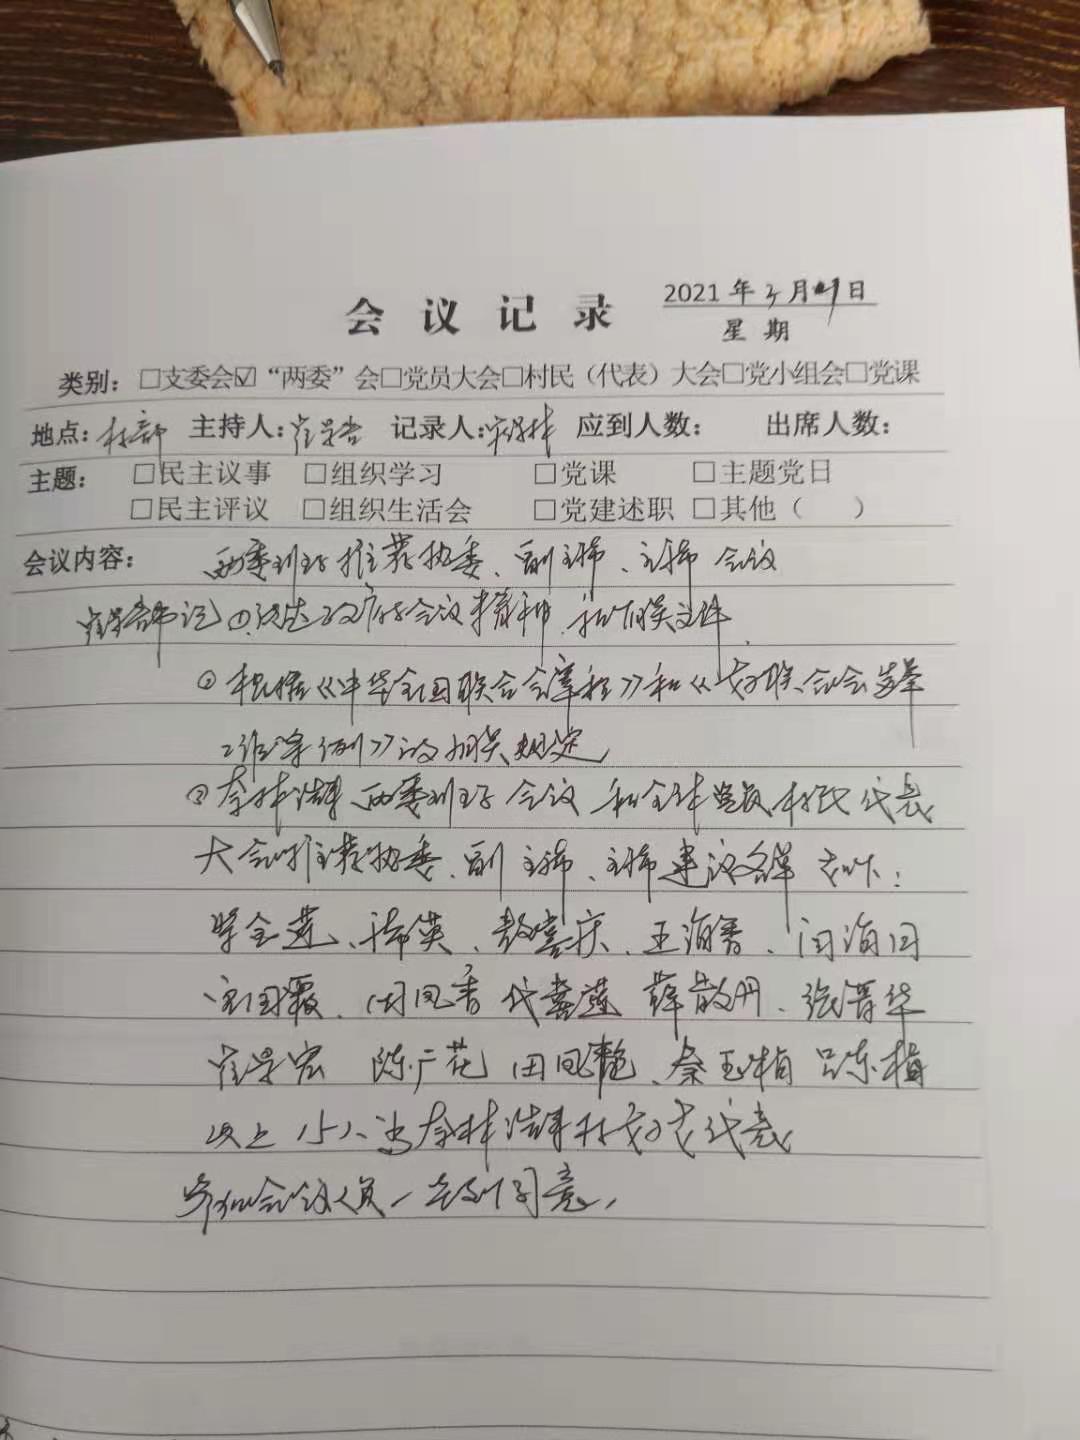 会议记录 2021年3月 日
星期
类别：□支委会☑“两委”会□党员大会□村民（代表）大会□党小组会□党课
地点：村部 主持人： 记录人： 应到人数： 出席人数：
主题： □民主议事 □组织学习 □党课 □主题党日
□民主评议 □组织生活会 □党建述职 □其他（ ）
会议内容： 两委班子推荐执委、副主席、主席会议
书记①传达 会议精神 和相关文件
② 根据《中华全国 联合会章程》和《妇联 会选举
工作条例》的相关规定
③ 两委班子会议和全体党员村民代表
大会推荐执委、副主席、主席建议名单如下：
金莲、 英、 喜庆、王海香、闫海田
国霞、田凤香 代喜莲 薛散丹、张晋华
景宏 陈广花 田凤艳、秦玉梅 吕东梅
以上15人为 村妇女代表
参加会议人员一致同意，